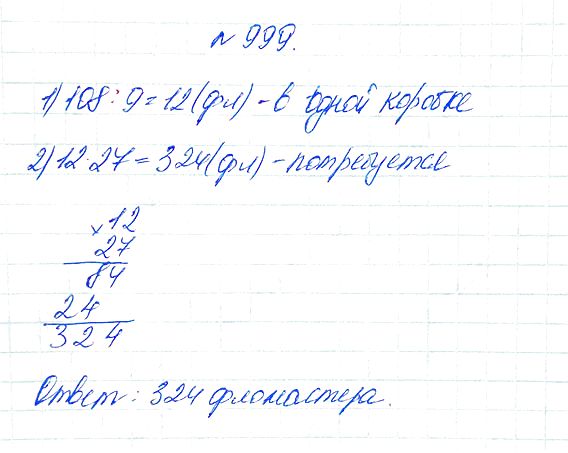 № 999.
1) 108 : 9 = 12 (фл) - в одной коробке
2) 12 · 27 = 324 (фл) - потребуется
× 12
27
84
24
324
Ответ: 324 фломастера.